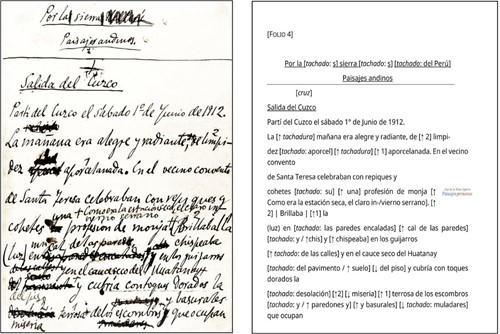 Por la sierra
Paisajes andinos.
Salida del Cuzco
Partí del Cuzco el Sábado 1º de Junio de 1912.
La mañana era alegre y radiante, de limpi-
dez aporcelanada. En el vecino convento
de Santa Teresa celebraban con repiques y
una
cohetes profesión de monja. Brillaba la
cal de las paredes chispeaba
(luz) en
en el cauce seco del Huatanay
y cubría con toques dorados la
terrosa de los escombros y basurales que ocupan
miseria
[FOLIO 4]
Por la [tachado: s] sierra [tachado: s] [tachado: del Perú]
Paisajes andinos
[cruz]
Salida del Cuzco
Partí del Cuzco el sábado 1º de Junio de 1912.
La [↑ tachadura] mañana era alegre y radiante, de [↑ 2] limpi-
dez [tachado: aporcel] [↑ tachado] [↑ 1] aporcelanada. En el vecino
convento
de Santa Teresa celebraban con repiques y
cohetes [tachado: su] [↑ una] profesión de monja [↑
Como era la estación seca, el claro in-/vierno serrano]. [↑
2] | Brillaba | [↑1] la
(luz) en [tachado: las paredes encaladas] [↑ cal de las paredes]
[tachado: y / ↑ chis] y [↑ chispeaba] en los guijarros
[↑ tachado: de las calles] y en el cauce seco del Huatanay
[tachado: del pavimento / ↑ suelo] [¿ del piso] y cubría con toques
dorados la
[tachado: desolación] [↑2] [¿ miseria] [↑ 1] terrosa de los escombros
[tachado: y / ↑ paredones y] [↑ y basurales] [tachado: muladares]
que ocupan